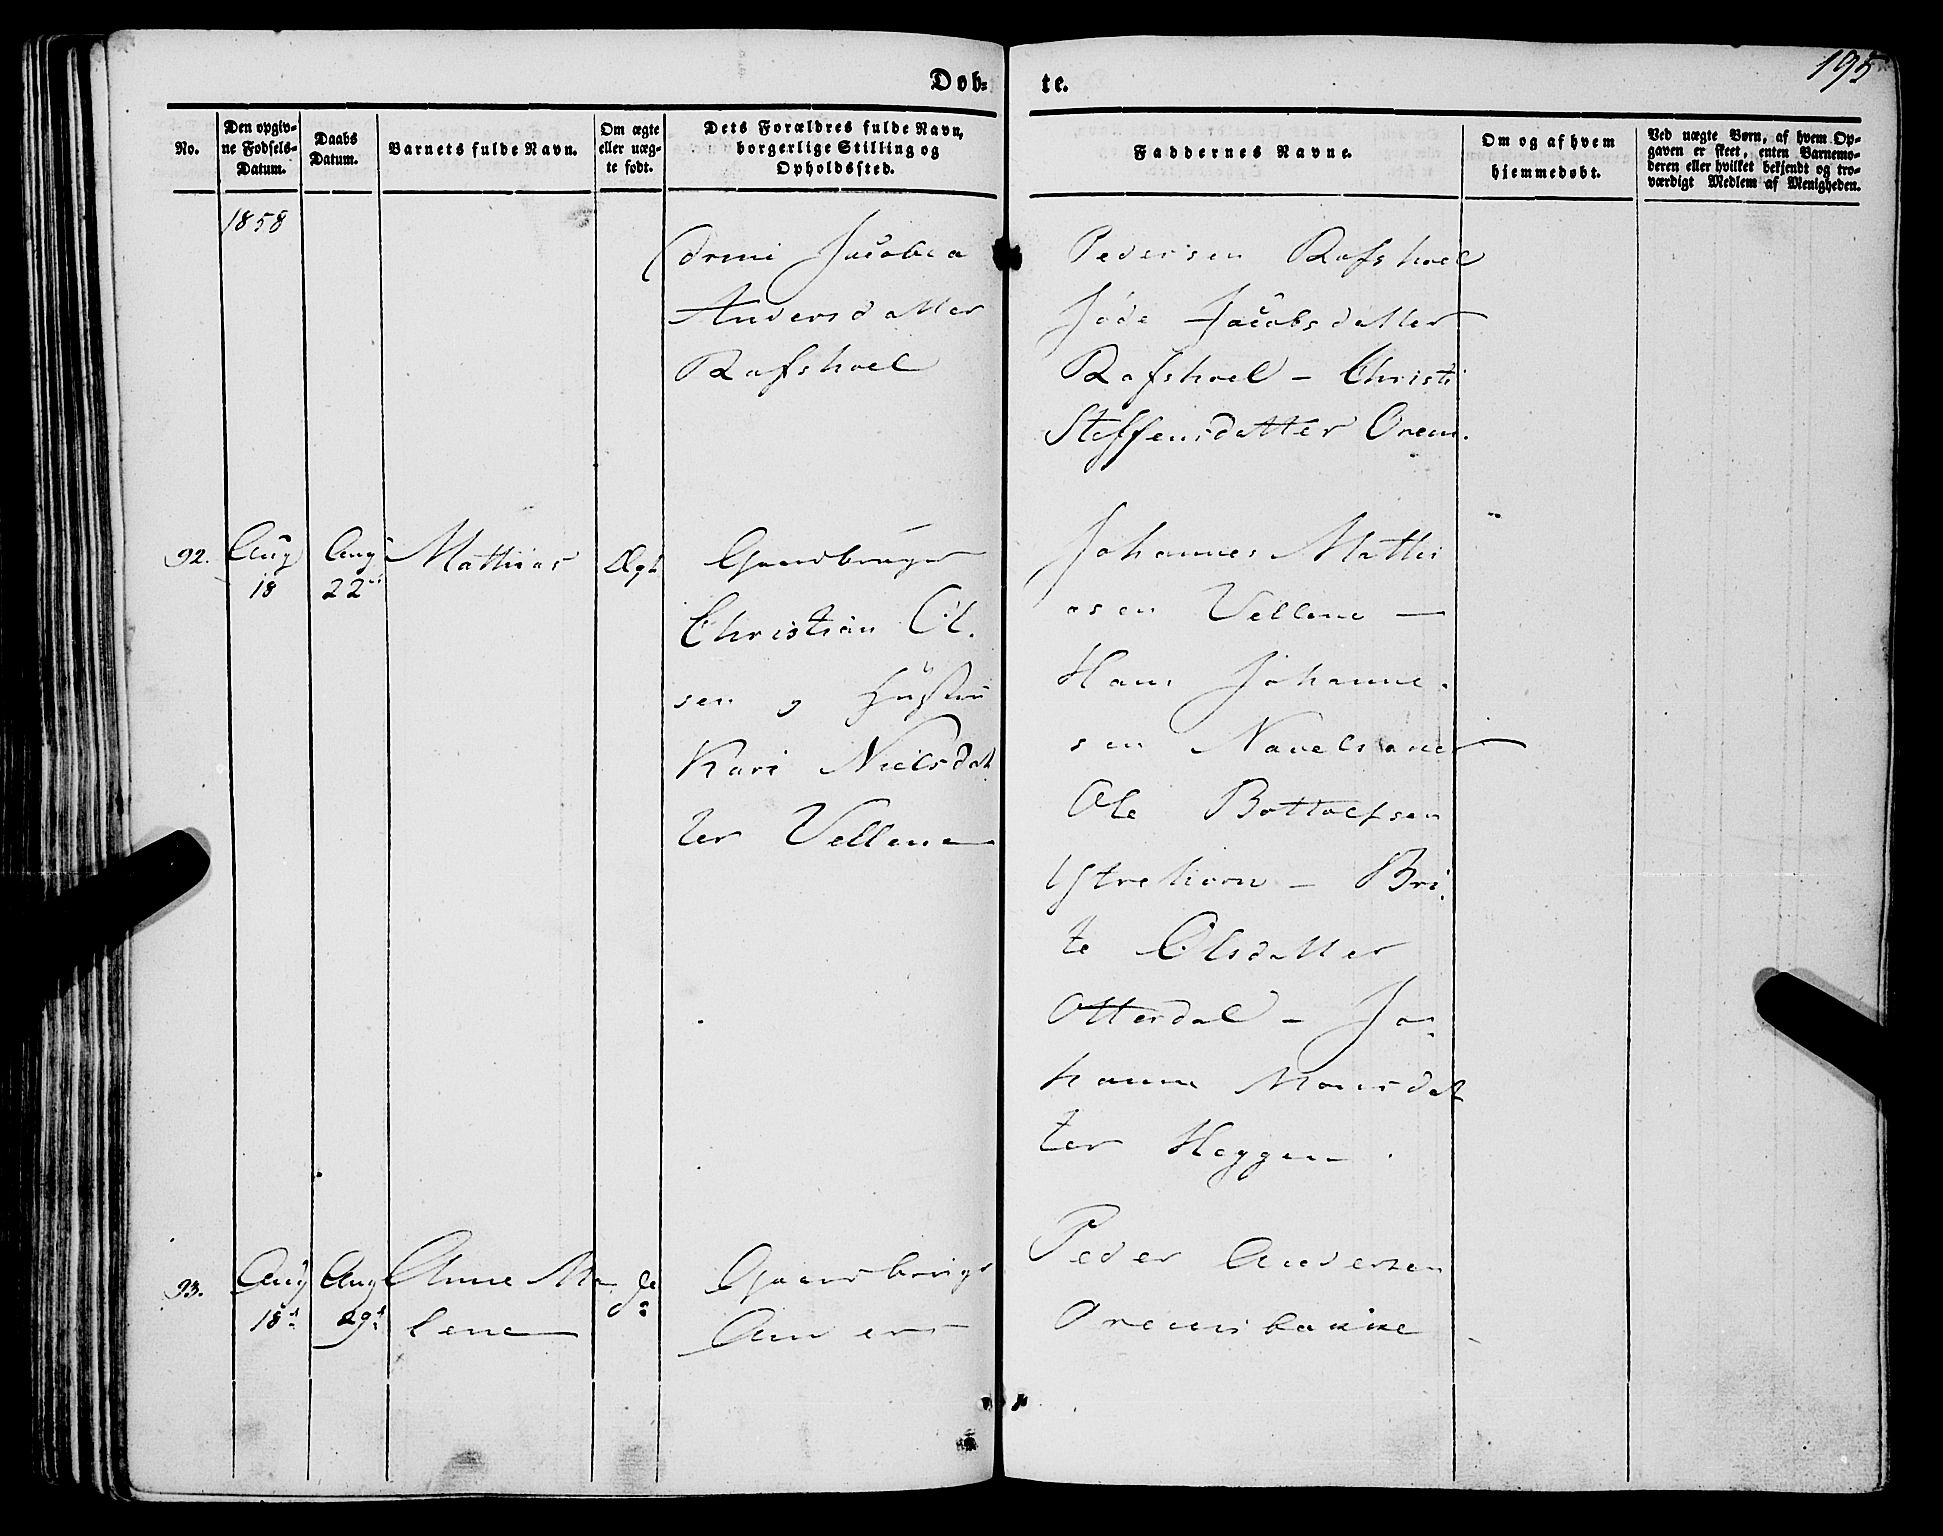 Døb-
te.
195
No.
Den opgiv-
ne Fødsels-
Datum.
Daabs
Datum.
Barnets fulde Navn.
Om ægte
eller uæg-
te født.
Dets Forældres fulde Navn,
borgerlige Stilling og
Opholdssted.
Faddernes Navne.
Om og af hvem
hjemmedøbt.
Ved uægte Børn, af hvem Op-
gaven er skeet, enten Barnemo-
deren eller hvilket bekjendt og tro-
værdigt Medlem af Menigheden.
1858
Jacobea
Andersdatter
Rafshoel
Pedersen Rafshoel
Jøde Jacobsdatter
Rafshoel - Christi
Steffensdatter Orem.
92.
Aug
18
Aug
22
Mathias
Ægt
Gaardbruger
Christian Ol-
sen og Hustru
Kari Nielsdat
ter Vellene
Johannes Mathi
asen Vellene -
Hans Johanne-
sen
Ole Bottolfsen
Ytrehorn - Bri-
te Olsdatter
Otterdal - Jo-
hanne Monsdat
ter Heggen.
93.
Aug
18
Aug
29
Anne Ma-
lene
do
Gaardbrugr
Anders
Peder Andersen
Oremsbakke